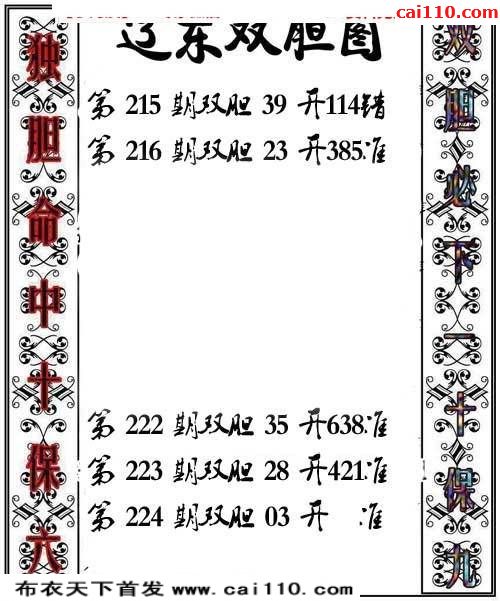 cai110.com
辽东双胆图
独胆命中十保六
第 215 期双胆 39 开114错
第 216 期双胆 23 开385准
第 222 期双胆 35 开638准
第 223 期双胆 28 开421准
第 224 期双胆 03 开 准
双胆必下一十保九
布衣天下首发 www.cai110.com